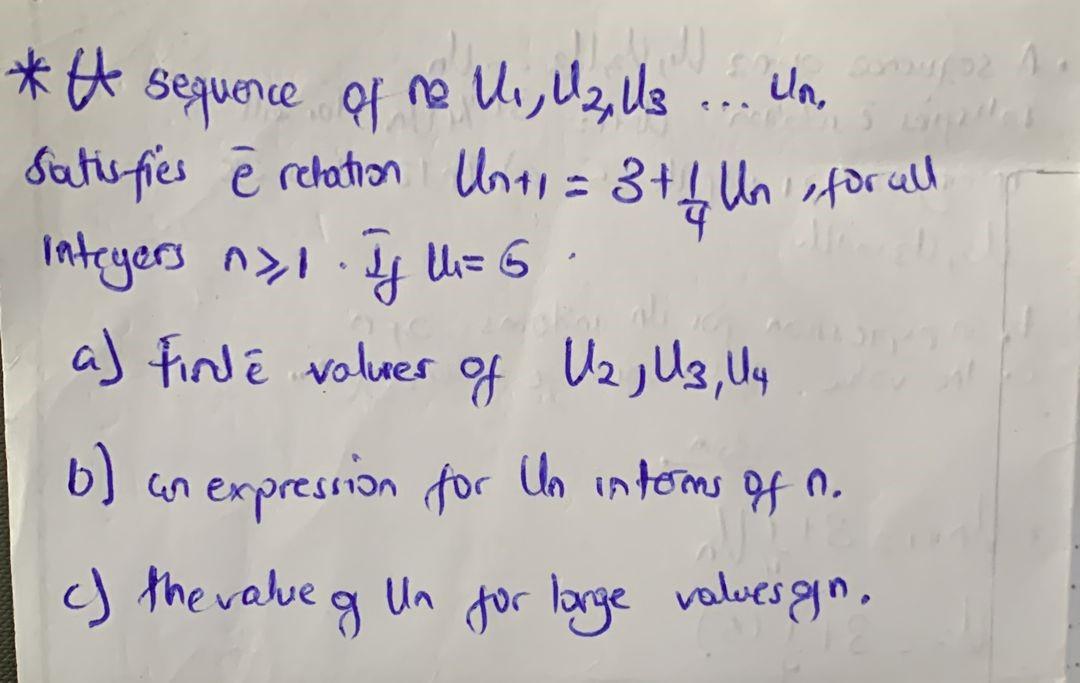 * A sequence of no U₁, U₂, U₃ ... Un,
Satisfies ē relation Un+1 = 3 + 1/4 Un, for all
integers n ≥ 1. If U₁ = 6.
a) find ē values of U₂, U₃, U₄
b) an expression for Un interms of n.
c) the value of Un for large values of n.